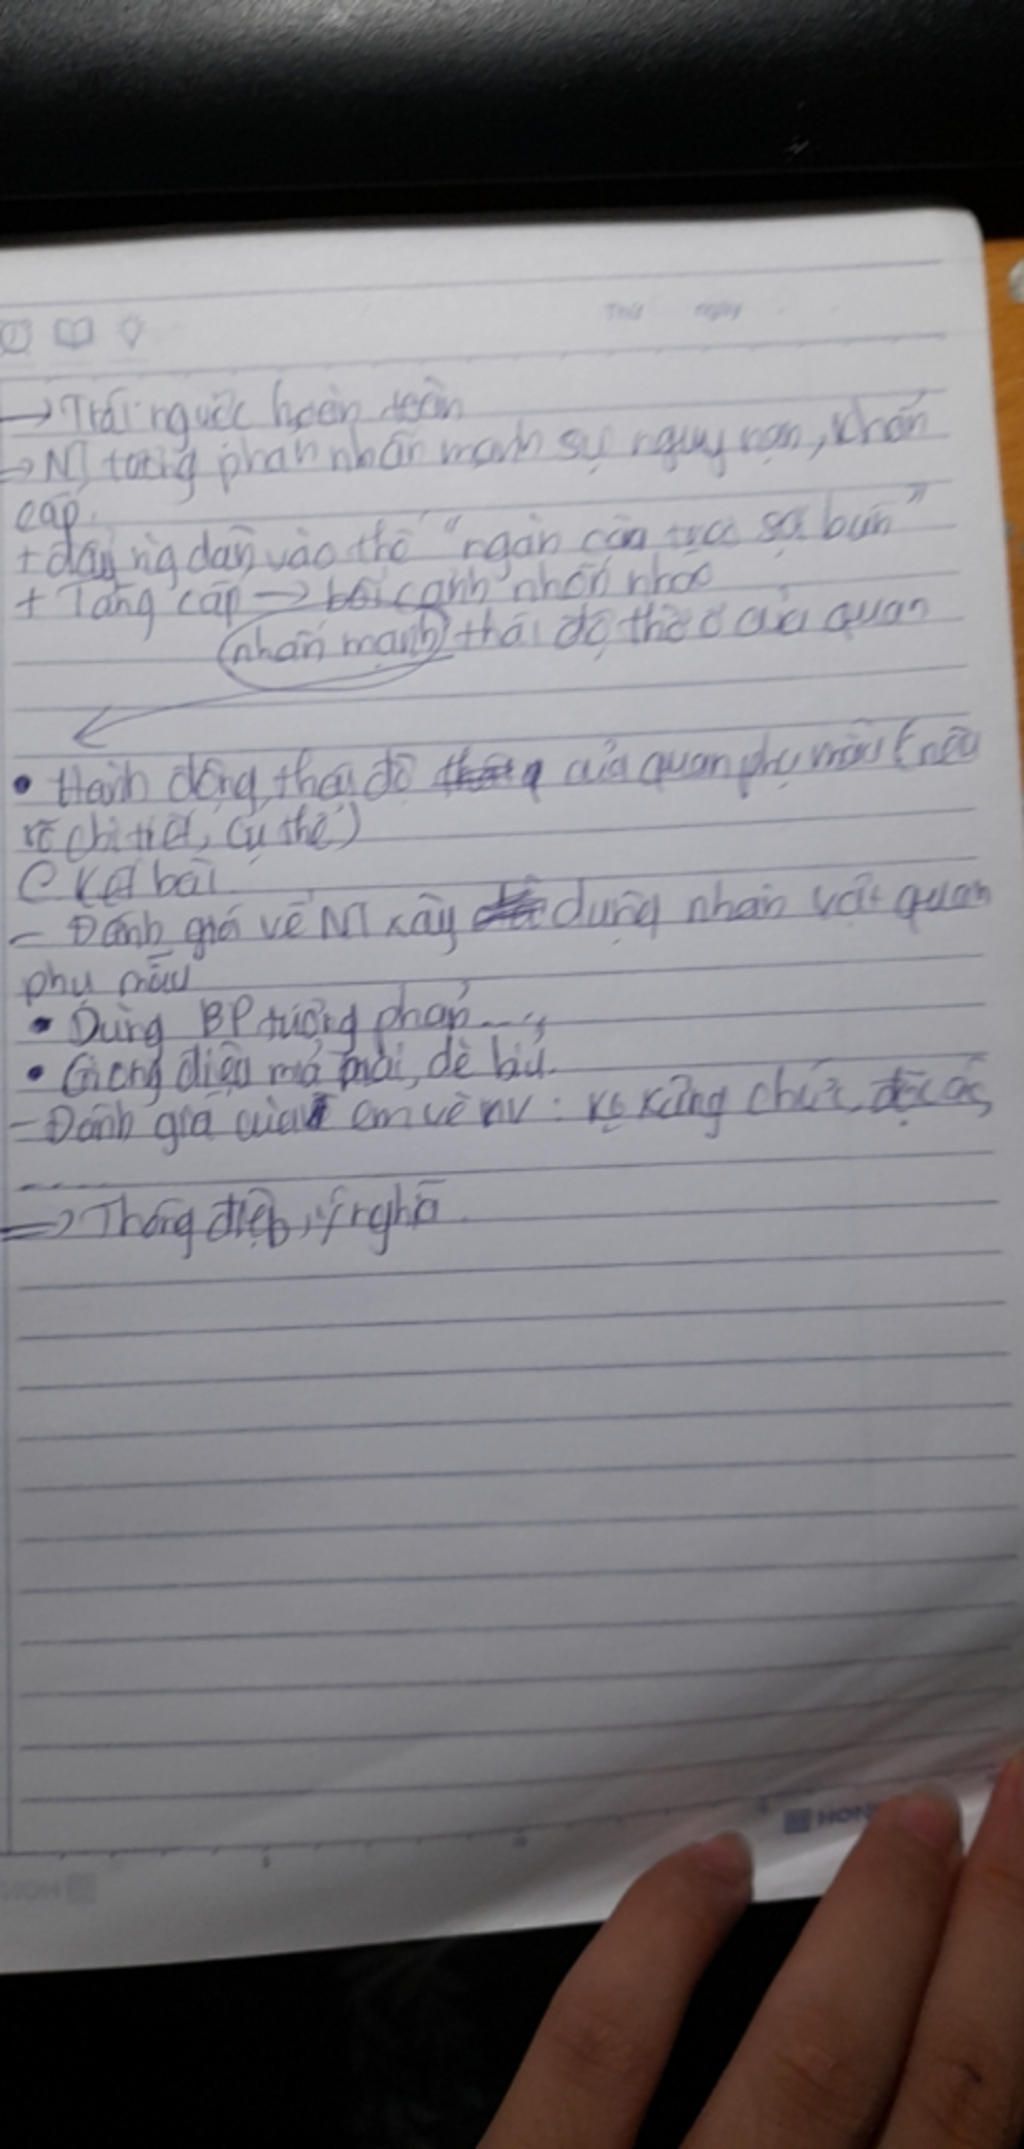 Thứ ngày
→ Trái ngược hoàn toàn
→ NT tương phản nhấn mạnh sự nguy nan, khẩn
cấp.
+ đẩy ng dân vào thế "ngàn cân treo sợi bún"
+ Tăng cấp → bối cảnh nhốn nháo
nhấn mạnh thái độ thờ ơ của quan
• Hành động, thái độ của quan phụ mẫu (nêu
rõ chi tiết, cụ thể)
C Kết bài
- Đánh giá về NT xây dựng nhân vật quan
phụ mẫu
• Dùng BP tương phản...,
• Giọng điệu mỉa mai, đè bỉu.
- Đánh giá của em về nv: vô chức, độc ác,
.....
=> Thông điệp, ý nghĩa